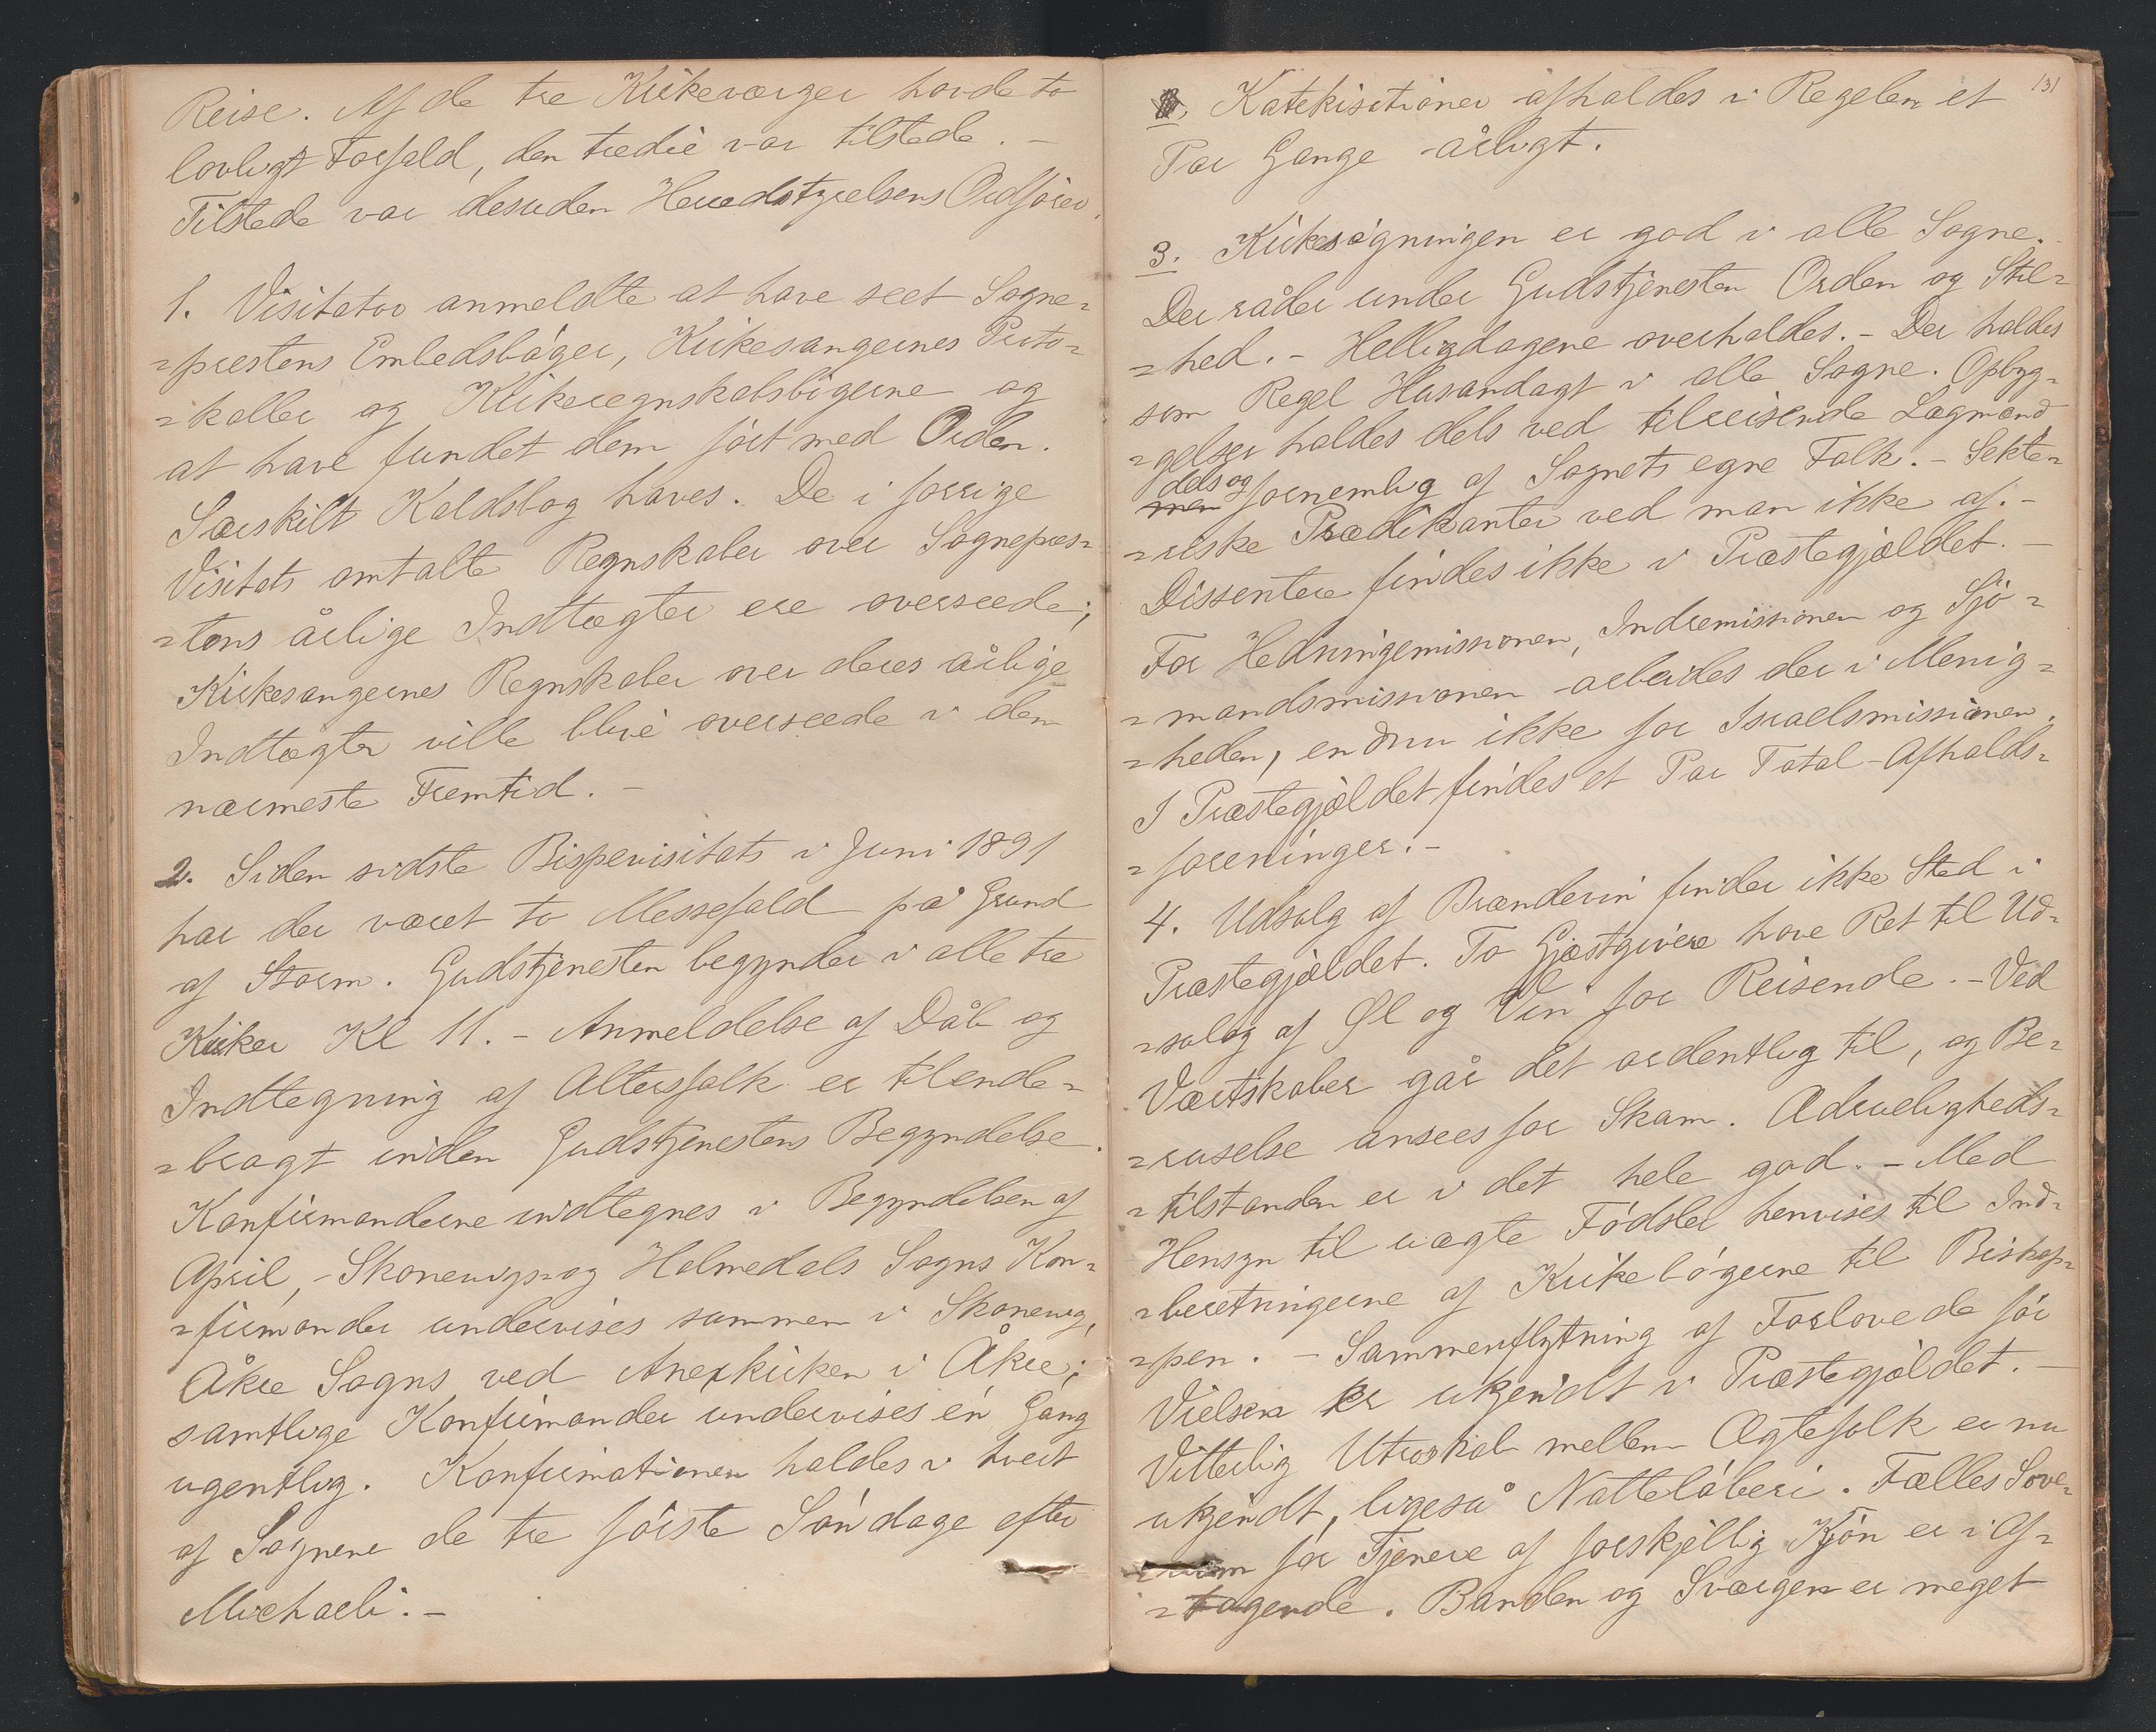 Reise. Af de tre Kirkeværger havde to
lovligt Forfald, den tredie var tilstede. –
Tilstede var desuden Herredstyrelsens Ordfører.
1. Visitator anmeldte at have seet Sogne-
-prestens Embedsbøger, Kirkesangernes Proto-
-koller og Kirkeregnskabsbøgerne og
at have fundet dem ført med Orden.
Særskilt Kaldsbog haves. De i forrige
Visitats omtalte Regnskaber over Sognepres-
-tens årlige Indtægter ere overseede;
Kirkesangernes Regnskaber over deres årlige
Indtægter ville blive overseede i den
nærmeste Fremtid. –
2. Siden sidste Bispevisitats i Juni 1891
har der været to Messefald på Grund
af Storm. Gudstjenesten begynder i alle tre
Kirker Kl 11. – Anmeldelse af Dåb og
Indtegning af Altersfolk er tilende-
-bragt inden Gudstjenestens Begyndelse.
Konfirmanderne indtegnes i Begyndelsen af
April, – Skonevigs- og Holmedals Sogns Kon-
-firmander undervises sammen i Skonevig,
Åkre Sogns ved Anexkirken i Åkre;
samtlige Konfirmander undervises én Gang
ugentlig. Konfirmationen holdes i hvert
af Sognene de tre første Søndage efter
Michaeli. –
131
Katekisationer afholdes i Regelen et
Par Gange årligt.
3. Kirkesøgningen er god i alle Sogne.
Der råder under Gudstjenesten Orden og Stil-
-hed. – Helligdagene overholdes. – Der holdes
som Regel Husandagt i alle Sogne. Opbyg-
-gelser holdes dels ved tilreisende Lægmænd
dels og
men fornemlig af Sognets egne Folk. – Sekte-
-riske Prædikanter ved man ikke af. –
Dissentere findes ikke i Præstegjældet. –
For Hedningemissionen, Indremissionen og Sjø-
-mandsmissionen arbeides der i Menig-
-heden, endnu ikke for Israelsmissionen.
I Præstegjældet findes et Par Total-Afholds-
-foreninger. –
4. Udsalg af Brændevin finder ikke Sted i
Præstegjældet. To Gjæstgivere have Ret til Ud-
-salg af Øl og Vin for Reisende. – Ved
Værtskaber går det ordentlig til, og Be-
-ruselse ansees for Skam. Ædrueligheds-
-tilstanden er i det hele god. – Med
Hensyn til uægte Fødsler henvises til Ind-
-beretningerne af Kirkebøgerne til Biskop-
-pen. – Sammenflytning af Forlovede før
Vielsen er ukjendt i Præstegjældet. –
Vitterlig Utroskab mellem Ægtefolk er nu
ukjendt, ligeså Natteløberi. Fælles Sove-
-rum for Tjenere af forskjellig Kjøn er i Af-
-tagende. Banden og Sværgen er meget